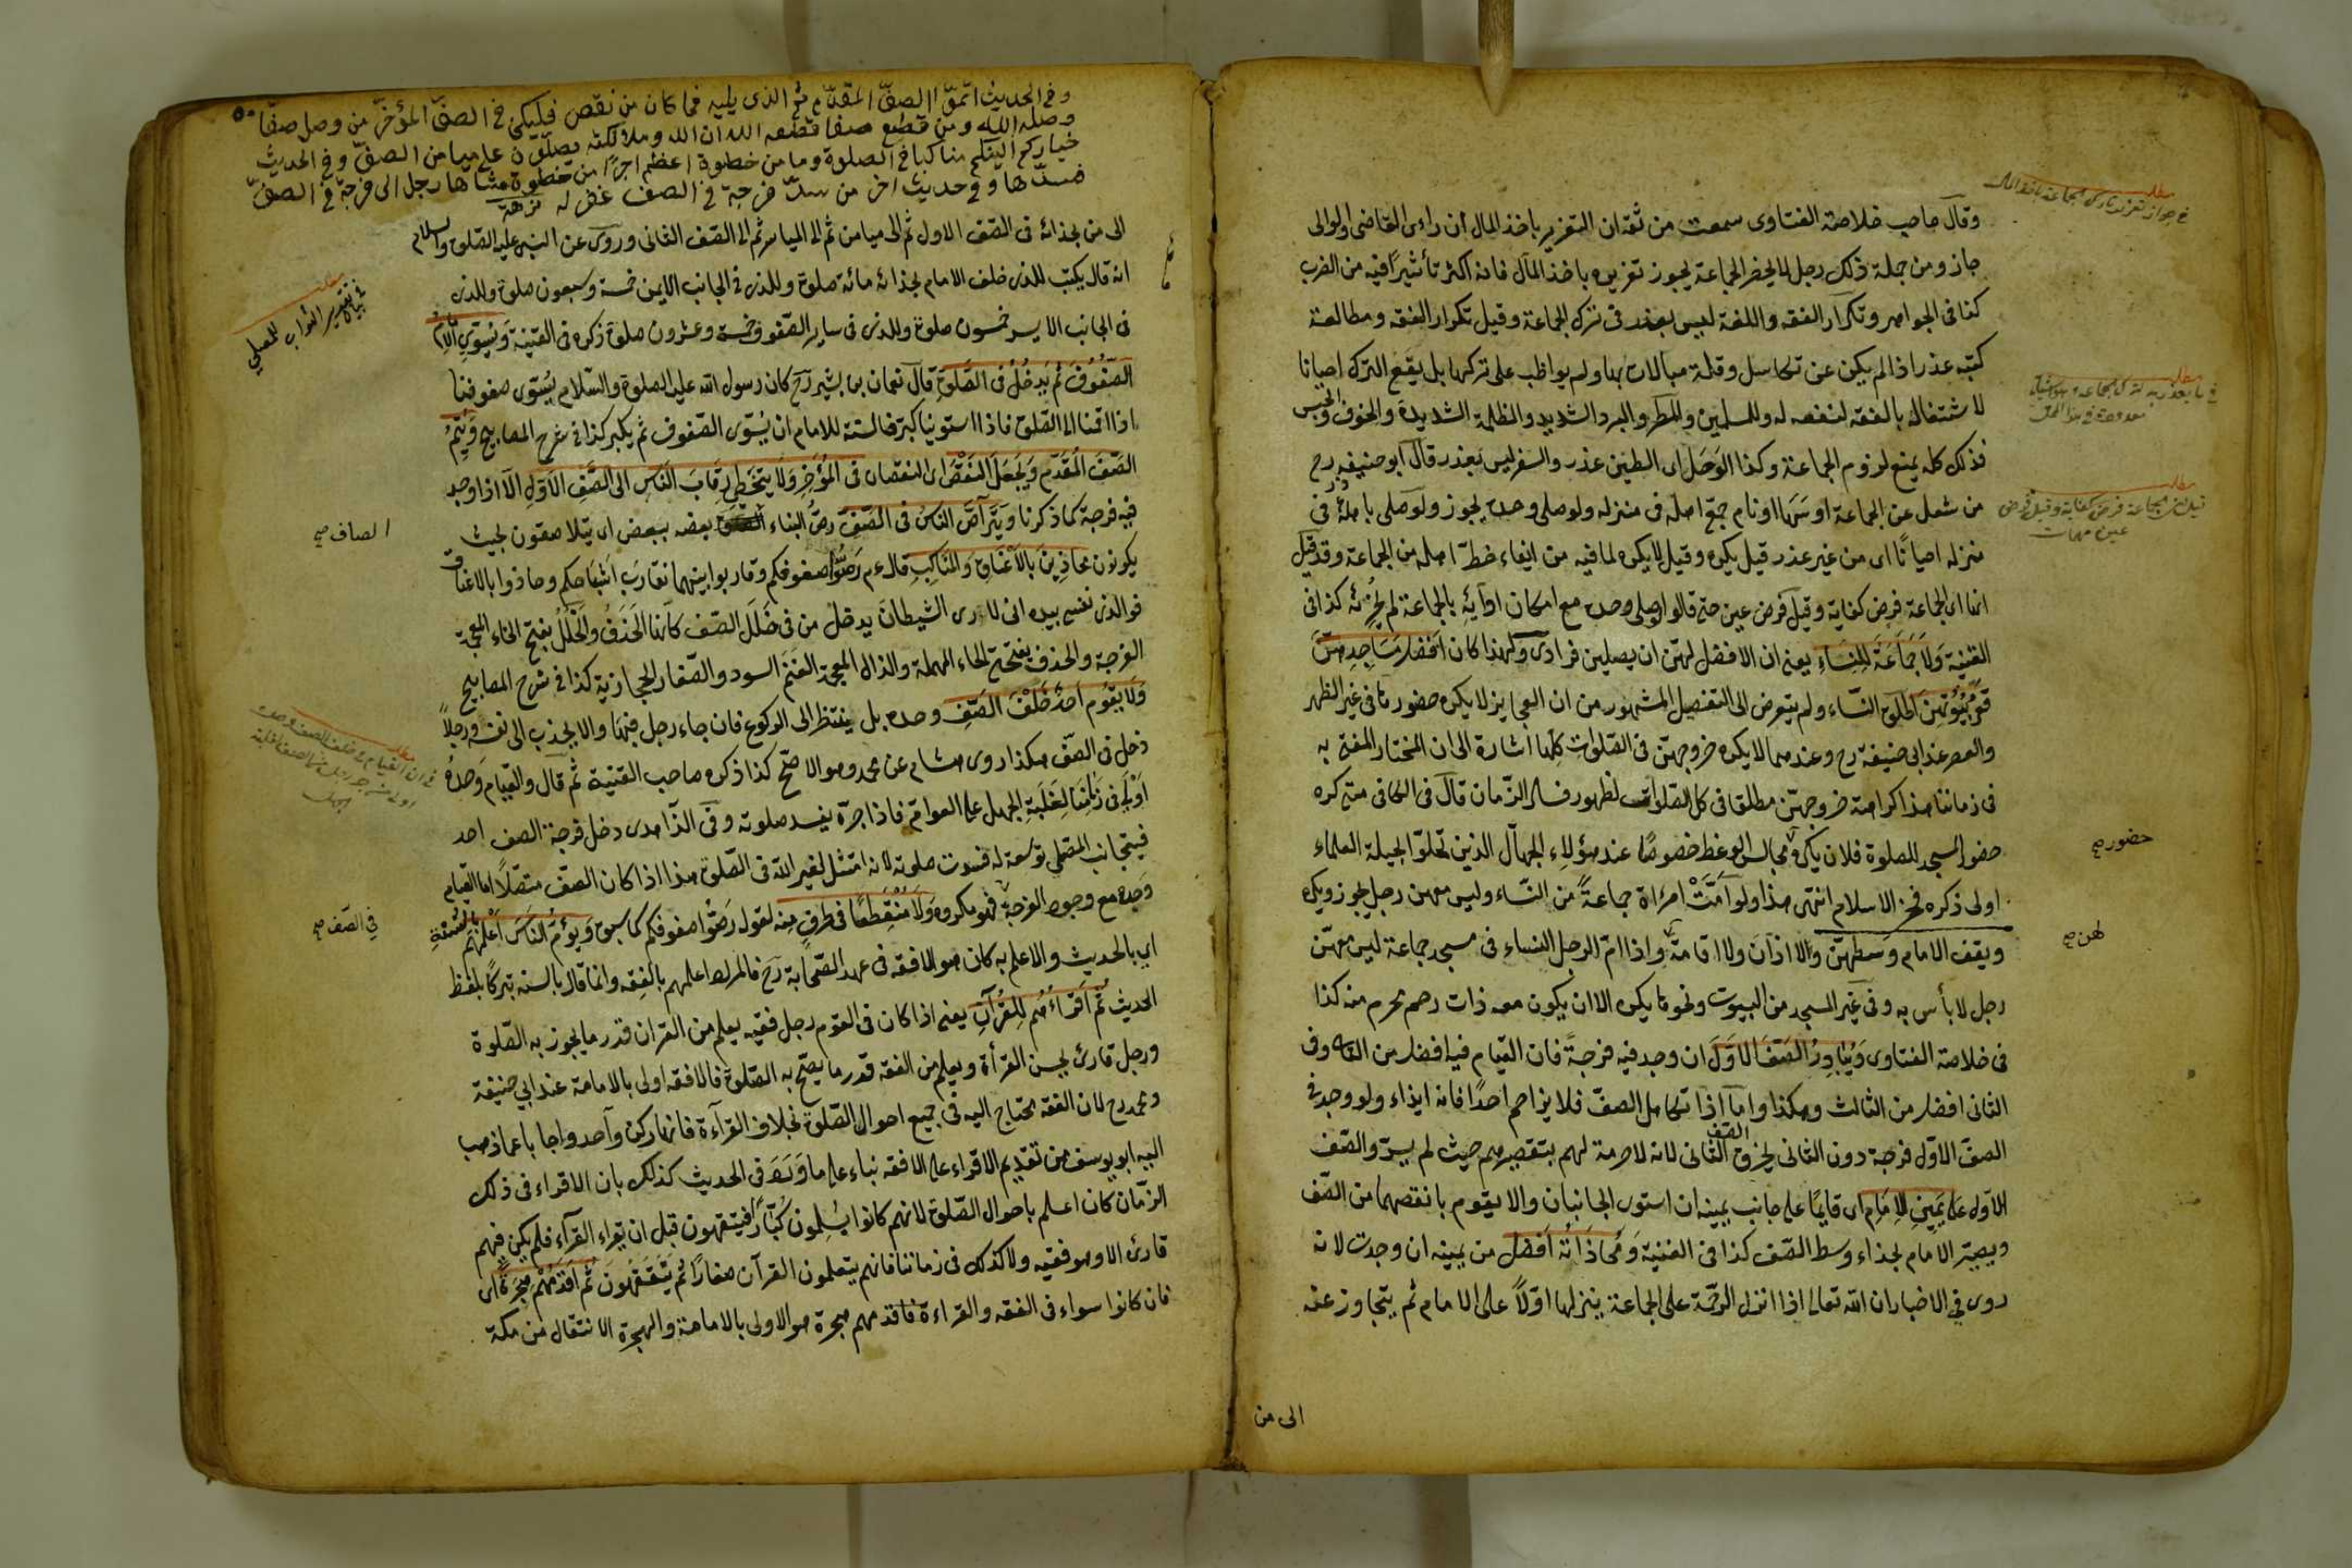 وقال صاحب خلاصة الفتاوى سمعت من ثقة ان التعزير باخذ المال ان رءاى القاضى او الوالى
جاز ومن جملة ذلك رجل لا يحضر الجماعة يجوز تعزيره باخذ المال فانه اكثر تأثيرا فيه من الضرب
كذا فى الجواهر وتكرار الفقه واللغة ليس بعذر فى ترك الجماعة وقيل تكرار الفقه ومطالعة
كتبه عذر اذا لم يكن عن تكاسل وقلة مبالات بها ولم يواظب على تركها بل يقع الترك احيانا
لاشتغاله بالفقه لنفعه له وللمسلمين والمطر والبرد الشديد والظلمة الشديدة والخوف والحبس
فذلك كله يمنع لزوم الجماعة وكذا الوحل اى الطين عذر والسفر ليس بعذر قال ابو حنيفه رح
من شغل عن الجماعة او سها او نام جمع اهله فى منزله ولو صلى وحده يجوز ولو صلى باهله فى
منزله احيانا اى من غير عذر قيل يكره وقيل لا يكره لما فيه من ايفاء حظ اهله من الجماعة وقد قيل
انها اى الجماعة فرض كفاية وقيل فرض عين حتى قالوا لو صلى وحده مع امكان ادائه بالجماعة لم يجزئه كذا فى
القنية ولا جماعة للنساء يعنى ان الافضل لهن ان يصلين فرادى ولهذا كان افضل مساجدهن
قعر بيوتهن اطلق النساء ولم يتعرض الى التفصيل المشهور من ان العجايز لا يكره حضورها فى غير الظهر
والعصر عند ابى حنيفة رح وعندهما لا يكره خروجهن فى الصلوات كلها اشارة الى ان المختار المفتى به
فى زماننا هذا كراهة خروجهن مطلقا فى كل الصلوات لظهور فساد الزمان قال فى الكافى متى كره
حضور المسجد للصلوة فلان يكره مجالس الوعظ خصوصا عند هؤلاء الجهال الذين تحلوا بحيلة العلماء
اولى ذكره فخر الاسلام انتهى هذا ولو امت امرءاة جماعة من النساء وليس معهن رجل يجوز ويكره
ويقف الامام وسطهن ولا اذان ولا اقامة واذا ام الرجل النساء فى مسجد جماعة ليس معهن
رجل لا بأس به وفى غير المسجد من البيوت ونحوها يكره الا ان يكون معه ذات رحم محرم منه كذا
فى خلاصة الفتاوى ويبادر الصف الاول ان وجد فيه فرجة فان القيام فيه افضل من الثانى وفى
الثانى افضل من الثالث وهكذا واما اذا تكامل الصف فلا يزاحم احدا فانه ايذاء ولو وجد فى
الصف الاول فرجة دون الثانى يخرق الصف الثانى لانه لا حرمة لهم بتقصيرهم حيث لم يسدوا الصف
الاول على يمين الامام اى قايما على جانب يمينه ان استوى الجانبان والا يقوم بانقصهما من الصف
ويصير الامام بحذاء وسط الصف كذا فى القنية ومحاذاته افضل من يمينه ان وجدت لانه
روى فى الاخبار ان الله تعالى اذا انزل الرحمة على الجماعة ينزلها اولا على الامام ثم يتجاوز عنه
الى من
مطلب
فى جواز تعزير تارك الجماعة باخذ المال
مطلب
مطلب
حضور صح
لهن صح
وفى الحديث اتموا الصف المقدم ثم الذى يليه فما كان من نقص فليكن فى الصف المؤخر من وصل صفا
وصله الله ومن قطع صفا قطعه الله ان الله وملائكته يصلون على ميامن الصف وفى الحديث
خياركم الينكم مناكبا فى الصلوة وما من خطوة اعظم اجرا من خطوة مشاها رجل الى فرجة فى الصف
فسدها وفى حديث اخر من سد فرجة فى الصف غفر له نزهة
الى من بحذائه فى الصف الاول ثم الى ميامن ثم الى المياسر ثم الى الصف الثانى وروى عن النبى عليه الصلوة والسلام
انه قال يكتب للذى خلف الامام بحذائه مائة صلوة وللذى فى الجانب الايمن خمسة وسبعون صلوة وللذى
فى الجانب الايسر خمسون صلوة وللذى فى ساير الصفوف خمسة وعشرون صلوة ذكره فى القنية ويسوى الامام
الصفوف ثم يدخل فى الصلوة قال نعمان بن بشير رح كان رسول الله عليه الصلوة والسلام يسوى صفوفنا
اذا اقمنا الى الصلوة فاذا استوينا كبر فالسنة للامام ان يسوى الصفوف ثم يكبر كذا فى شرح المصابيح ويتم
الصف المقدم ويجعل النقص اى النقصان فى المؤخر ولا يتخطى رقاب الناس الى الصف الاول الا اذا وجد
فيه فرجة كما ذكرنا ويتراص الناس فى الصف رص البناء بعضه ببعض اى يتلاصقون بحيث
يكونون محاذين بالاعناق والمناكب قال عم رصوا صفوفكم وقاربوا بينهما تقارب اشباحكم وحاذوا بالاعناق
فوالذى نفسى بيده انى لارى الشيطان يدخل من فى خلل الصف كانها الحذف والخلل بفتح الخاء المعجمة
الفرجة والحذف بفتحة الحاء المهملة والذال المعجمة الغنم السود والصغار الحجازية كذا فى شرح المصابيح
ولا يقوم احد خلف الصف وحده بل ينتظر الى الركوع فان جاء رجل فبها والا يجذب الى نفسه رجلا
دخل فى الصف هكذا روى هشام عن محمد وهو الاصح كذا ذكره صاحب القنية ثم قال والقيام وحده
اولى فى زماننا لغلبة الجهل على العوام فاذا جره يفسد صلوته وفى الزاهدى دخل فرجة الصف احد
فيتجانب المصلى توسعة له فسدت صلوته لانه امتثل لغير الله فى الصلوة هذا اذا كان الصف متصلا اما القيام
وحده مع وجود الفرجة فهو مكروه ولا منقطعا فى طرف منه لقوله رصوا صفوفكم كما سبق ويؤم الناس اعلمهم بالسنة
اى بالحديث والاعلم به كان هو الافقه فى عهد الصحابة رح فالمراد اعلمهم بالفقه وانما قال بالسنة تبركا بلفظ
الحديث ثم اقراءهم للقرآن يعنى اذا كان فى القوم رجل فقيه يعلم من القران قدر ما يجوز به الصلوة
ورجل قارئ يحسن القرأة ويعلم من الفقه قدر ما يصح به الصلوة فالافقه اولى بالامامة عند ابي حنيفة
ومحمد رح لان الفقه يحتاج اليه فى جميع احوال الصلوة بخلاف القرآءة فانها ركن واحد واجابا عما ذهب
اليه ابو يوسف من تقديم الاقراء على الافقه بناء على ما ورد فى الحديث كذلك بان الاقراء فى ذلك
الزمان كان اعلم باحوال الصلوة لانهم كانوا يسلمون كبارا فيتفقهون قبل ان يقراء القرآء فلم يكن فيهم
قارئ الا وهو فقيه ولا كذلك فى زماننا فانهم يتعلمون القرآن صغارا ثم يتفقهون ثم اقدمهم هجرة اى
فان كانوا سواء فى الفقه والقراءة فاقدمهم هجرة هو الاولى بالامامة والهجرة الانتقال من مكة
مطلب
فى بيان تقدير الثواب للمصلي
الصاف صح
مطلب
فى الصف صح